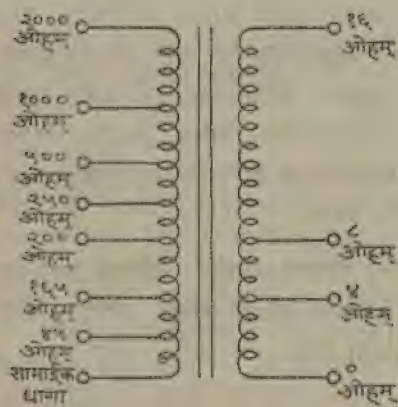 २०००
ओहम्
१०००
ओहम्
५००
ओहम्
२५०
ओहम्
२००
ओहम्
१६५
ओहम्
४५
ओहम्
सामाईक
धागा
१६
ओहम्
८
ओहम्
४
ओहम्
०
ओहम्